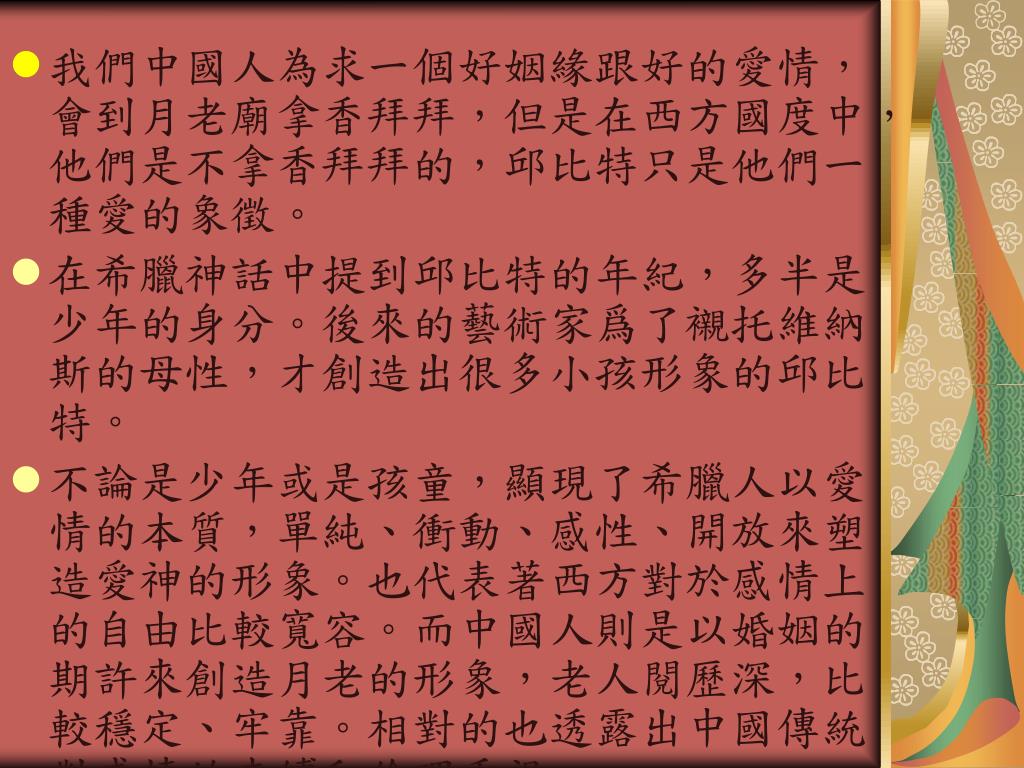 我們中國人為求一個好姻緣跟好的愛情，
會到月老廟拿香拜拜，但是在西方國度中，
他們是不拿香拜拜的，邱比特只是他們一
種愛的象徵。
在希臘神話中提到邱比特的年紀，多半是
少年的身分。後來的藝術家爲了襯托維納
斯的母性，才創造出很多小孩形象的邱比
特。
不論是少年或是孩童，顯現了希臘人以愛
情的本質，單純、衝動、感性、開放來塑
造愛神的形象。也代表著西方對於感情上
的自由比較寬容。而中國人則是以婚姻的
期許來創造月老的形象，老人閱歷深，比
較穩定、牢靠。相對的也透露出中國傳統